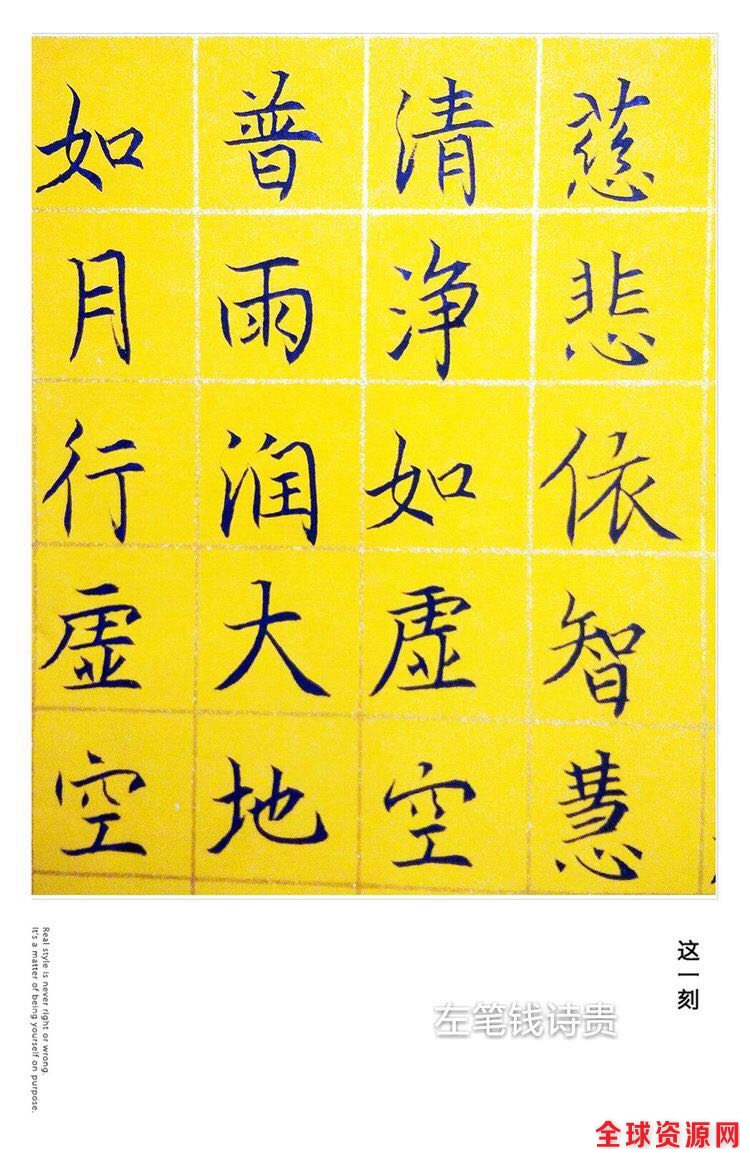 慈悲依智慧
清净如虚空
普雨润大地
如月行虚空
这一刻
左笔钱诗贵
Real style is never right or wrong.
It's a matter of being yourself on purpose.
全球资源网